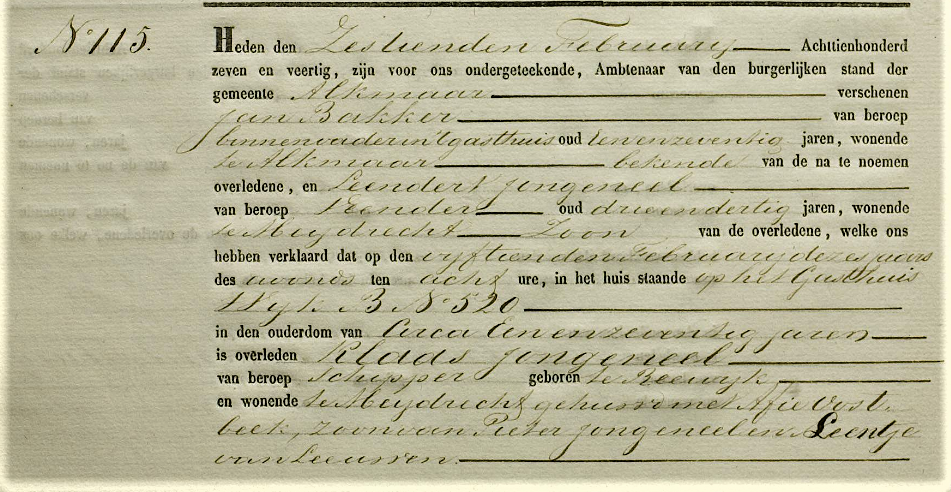 No 115.
Heden den Zestienden February Achttienhonderd
zeven en veertig, zijn voor ons ondergeteekende, Ambtenaar van den burgerlijken stand der
gemeente Alkmaar verschenen
Jan Bakker van beroep
binnenvader in 't gasthuis oud eenenzeventig jaren, wonende
te Alkmaar bekende van de na te noemen
overledene, en Leendert Jongeneel
van beroep oud drieendertig jaren, wonende
te Meydrecht Zoon van de overledene, welke ons
hebben verklaard dat op den vyftienden February dezes jaars
des avonds ten acht ure, in het huis staande op het Gasthuis
Wyk B No 520
in den ouderdom van Circa Eenenzeventig jaren
is overleden Klaas Jongeneel
van beroep Schipper geboren te Reewyk
en wonende te Meydrecht gehuwd met Afie Oost-
beek, zoon van Pieter Jongeneel en Leentje
van Leeuwen.